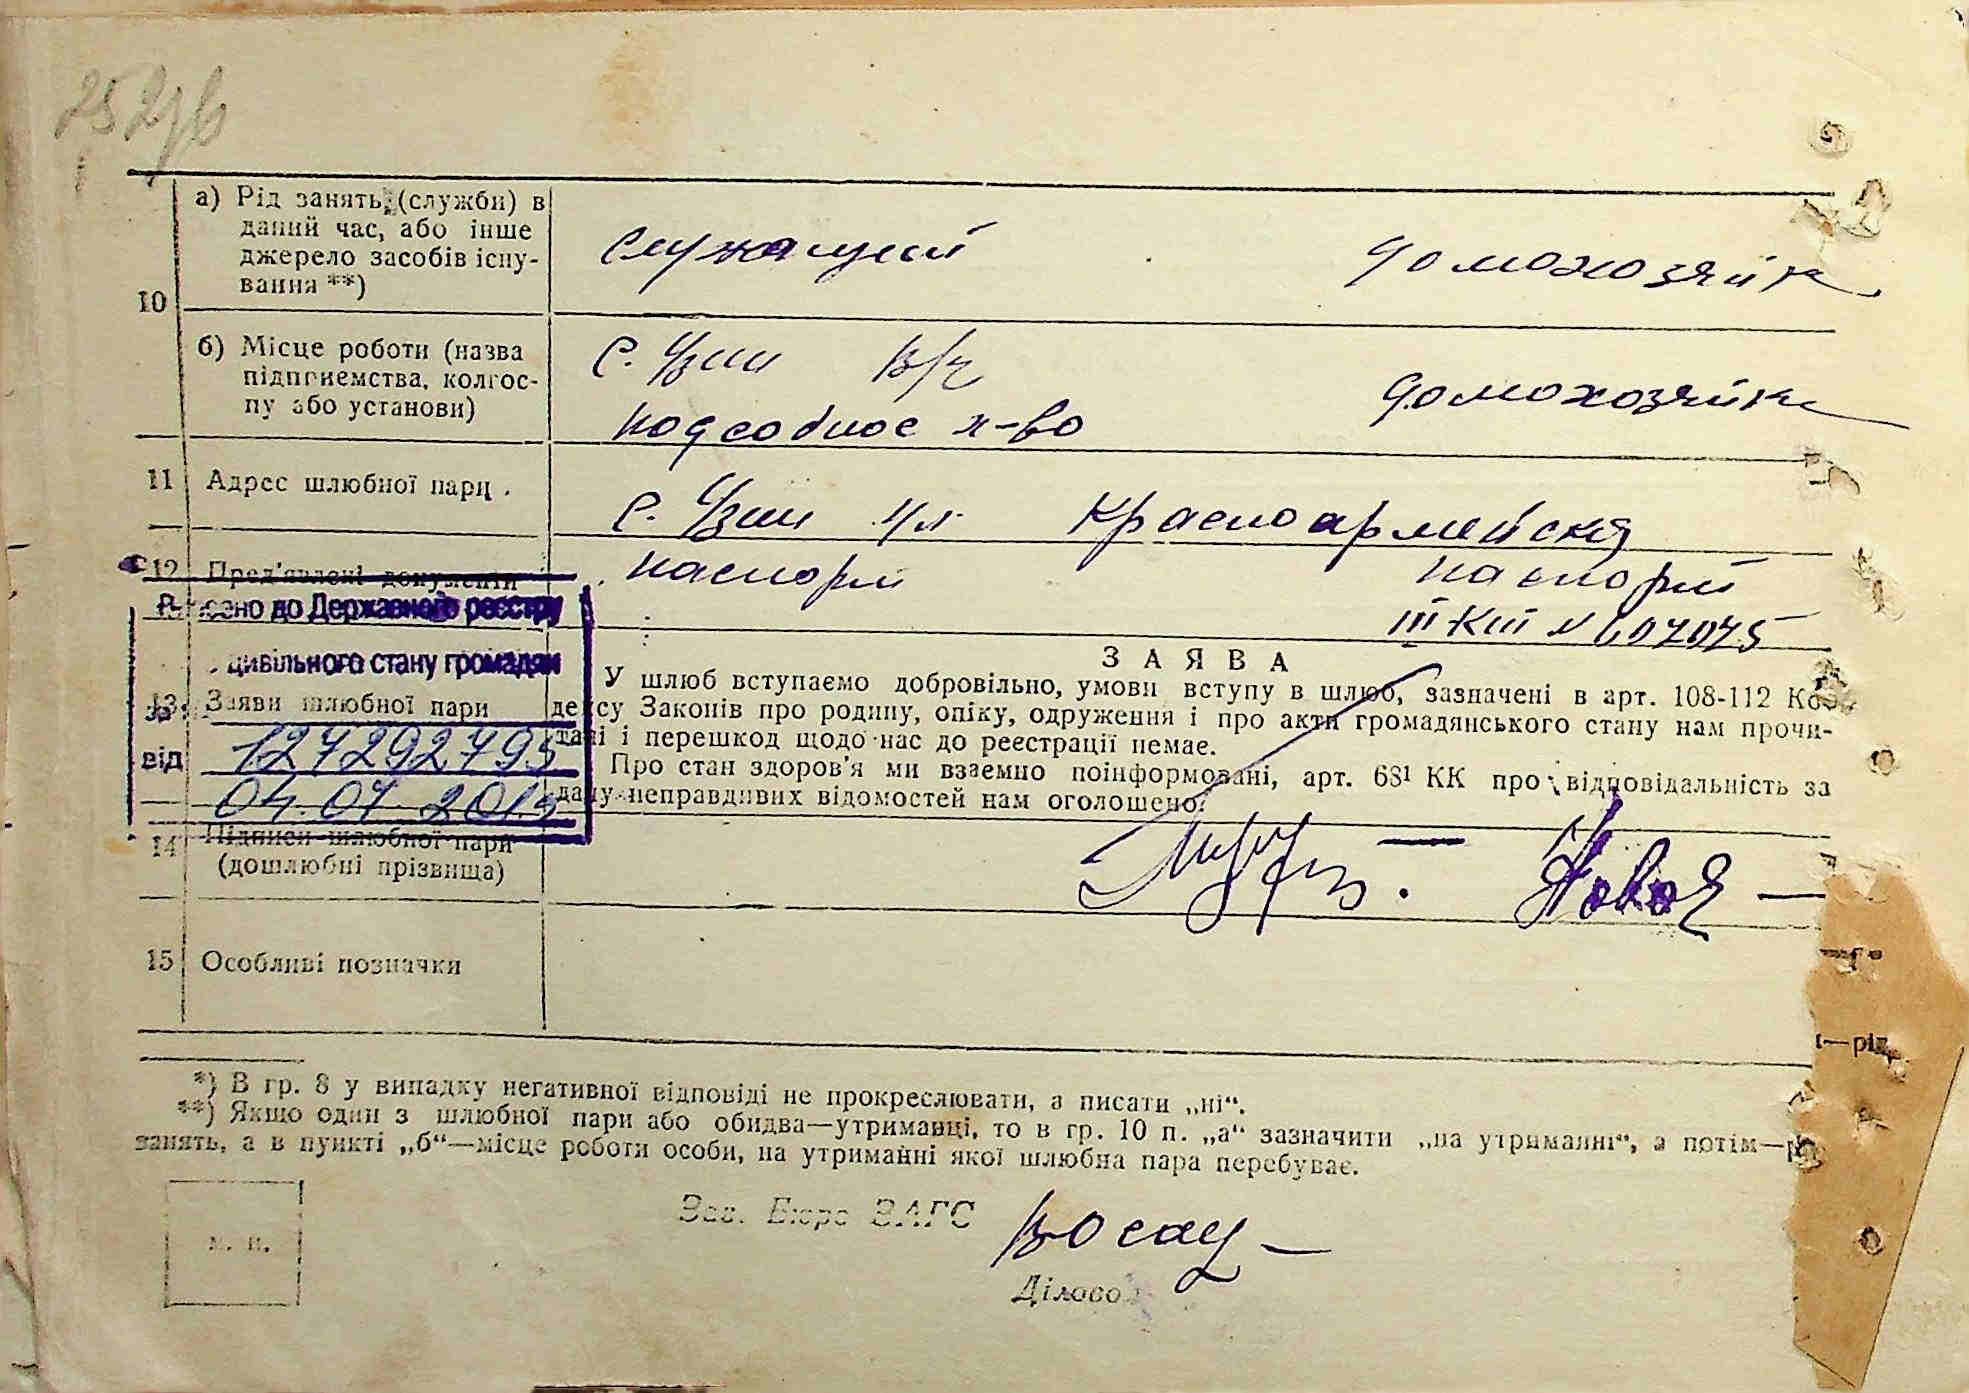 252
10
а) Рід занять (служби) в
даний час, або інше
джерело засобів існу-
вання **)
служащий
домохозяйк
б) Місце роботи (назва
підприємства, колгос-
пу або установи)
с. Узин в/ч
подсобное х-во
домохозяйка
11
Адрес шлюбної пари
с. Узин ул. Красноармейская
12
Пред'явлені документи
паспорт
паспорт
III КШ №607075
до Державного реєстру
цивільного стану громадян
за
від
127292795
04.07.2015
13
Заяви шлюбної пари
ЗАЯВА
У шлюб вступаємо добровільно, умови вступу в шлюб, зазначені в арт. 108-112 Ко-
дексу Законів про родину, опіку, одруження і про акти громадянського стану нам прочи-
тані і перешкод щодо нас до реєстрації немає.
Про стан здоров'я ми взаємно поінформовані, арт. 68¹ КК про відповідальність за
дачу неправдивих відомостей нам оголошено.
14
Підписи шлюбної пари
(дошлюбні прізвища)
15
Особливі позначки
— рід
*) В гр. 8 у випадку негативної відповіді не прокреслювати, а писати „ні“.
**) Якщо один з шлюбної пари або обидва—утриманці, то в гр. 10 п. „а“ зазначити „на утриманні“, а потім—
занять, а в пункті „б“—місце роботи особи, на утриманні якої шлюбна пара перебуває.
м. п.
Зав. Бюро ЗАГС
Діловод